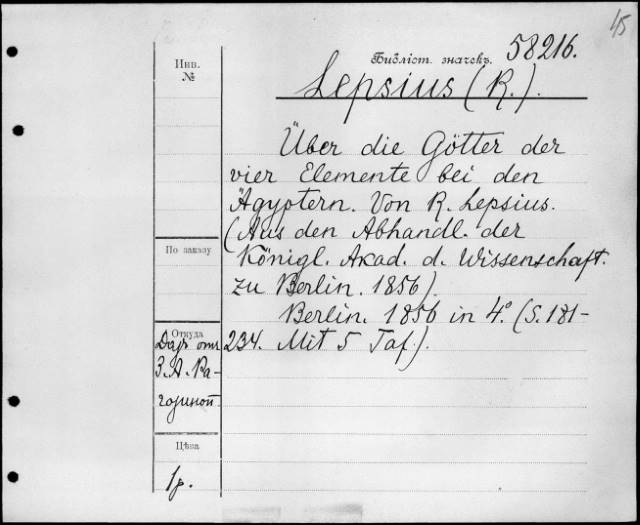 45
Библіот. значекъ. 58216.
Инв.
№
Lepsius (R.).
Über die Götter der
vier Elemente bei den
Ägyptern. Von R. Lepsius.
(Aus den Abhandl. der
Königl. Akad. d. Wissenschaft.
zu Berlin. 1856).
Berlin. 1856 in 4º. (S. 181-
234. Mit 5 Taf.).
По заказу
Откуда
Даръ отъ
З. А. Ра-
гозиной
Цѣна
1 р.